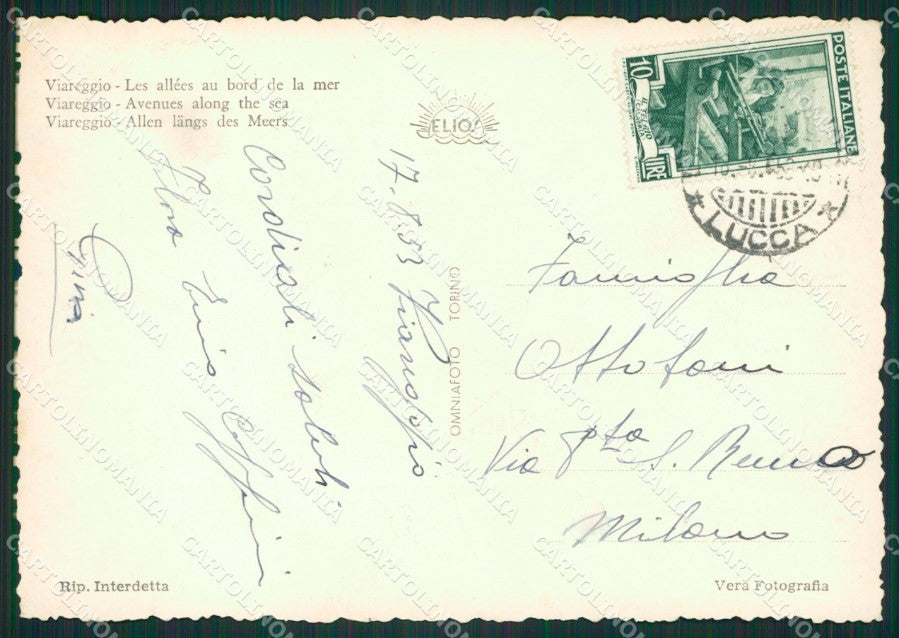 Viareggio - Les allées au bord de la mer
Viareggio - Avenues along the sea
Viareggio - Allen längs des Meers
ELIOS
POSTE ITALIANE
10
LIRE
LUCCA
17.8.53 Viareggio
Cordiali saluti
Gina
OMNIAFOTO TORINO
Famiglia
Ottolani
Via
Milano
Rip. Interdetta
Vera Fotografia
CARTOLINOMANIA